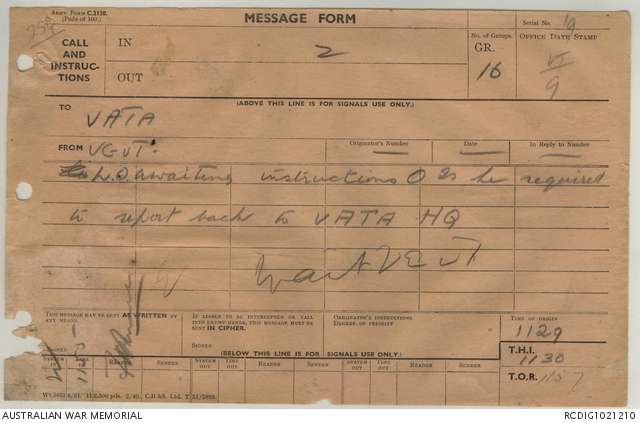 Army Form C.2138.
(Pads of 100.)
MESSAGE FORM
Serial No. 19
CALL
AND
INSTRUC-
TIONS
IN
2
OUT
No. of Groups.
GR.
16
OFFICE DATE STAMP
VI
9
(ABOVE THIS LINE IS FOR SIGNALS USE ONLY.)
TO
VATA
FROM VGUT
Originator's Number
Date
In Reply to Number
L.O. awaiting instructions O Is he required
to report back to VATA HQ
THIS MESSAGE MAY BE SENT AS WRITTEN BY
ANY MEANS.
SIGNED
IF LIABLE TO BE INTERCEPTED OR FALL
INTO ENEMY HANDS, THIS MESSAGE MUST BE
SENT IN CIPHER.
SIGNED
ORIGINATOR'S INSTRUCTIONS
DEGREE OF PRIORITY
TIME OF ORIGIN
1129
(BELOW THIS LINE IS FOR SIGNALS USE ONLY.)
T.H.I.
1130
SYSTEM
IN
TIME
IN
READER
SENDER
SYSTEM
OUT
TIME
OUT
READER
SENDER
SYSTEM
OUT
TIME
OUT
READER
SENDER
T.O.R. 1157
AUSTRALIAN WAR MEMORIAL
RCDIG1021210